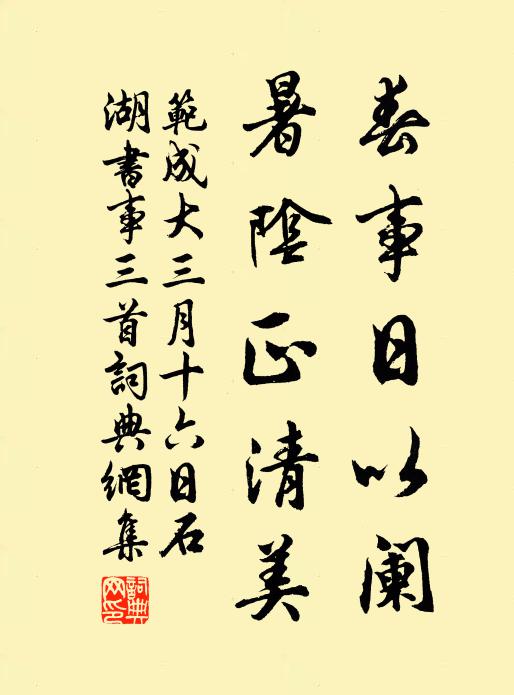 春事日以阑
暑陰正清美
範成大三月十六日石
湖書事三首詞典網集
詞典網印